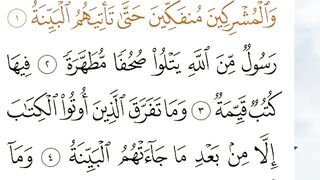 وَالْمُشْرِكِينَ مُنفَكِّينَ حَتَّىٰ تَأْتِيَهُمُ الْبَيِّنَةُ ١
رَسُولٌ مِّنَ اللَّهِ يَتْلُو صُحُفًا مُّطَهَّرَةً ٢ فِيهَا
كُتُبٌ قَيِّمَةٌ ٣ وَمَا تَفَرَّقَ الَّذِينَ أُوتُوا الْكِتَابَ
إِلَّا مِنۢ بَعْدِ مَا جَاءَتْهُمُ الْبَيِّنَةُ ٤ وَمَا